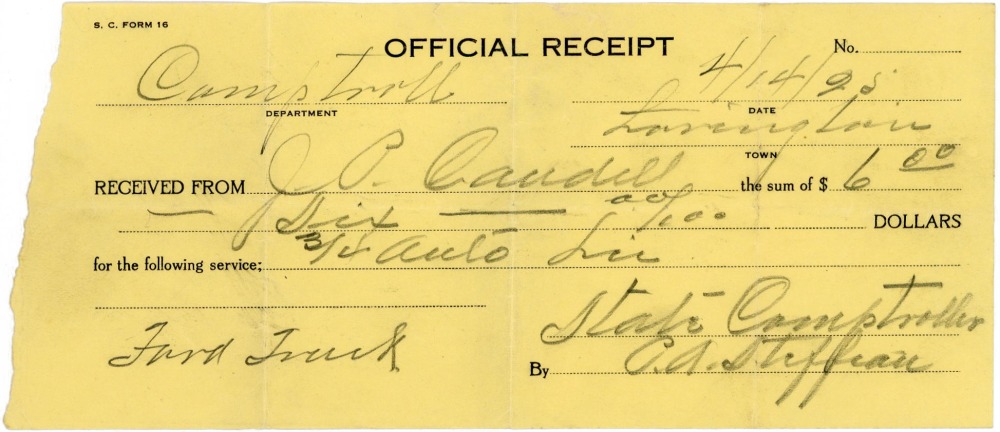 S. C. FORM 16
OFFICIAL RECEIPT
No.
Comptroll 4/14/25
DEPARTMENT DATE
Lovington
TOWN
RECEIVED FROM J. P. Caudell the sum of $ 6 00
— Six — 00/100 DOLLARS
for the following service; 3/4 Auto Lic
State Comptroller
Ford Truck
By